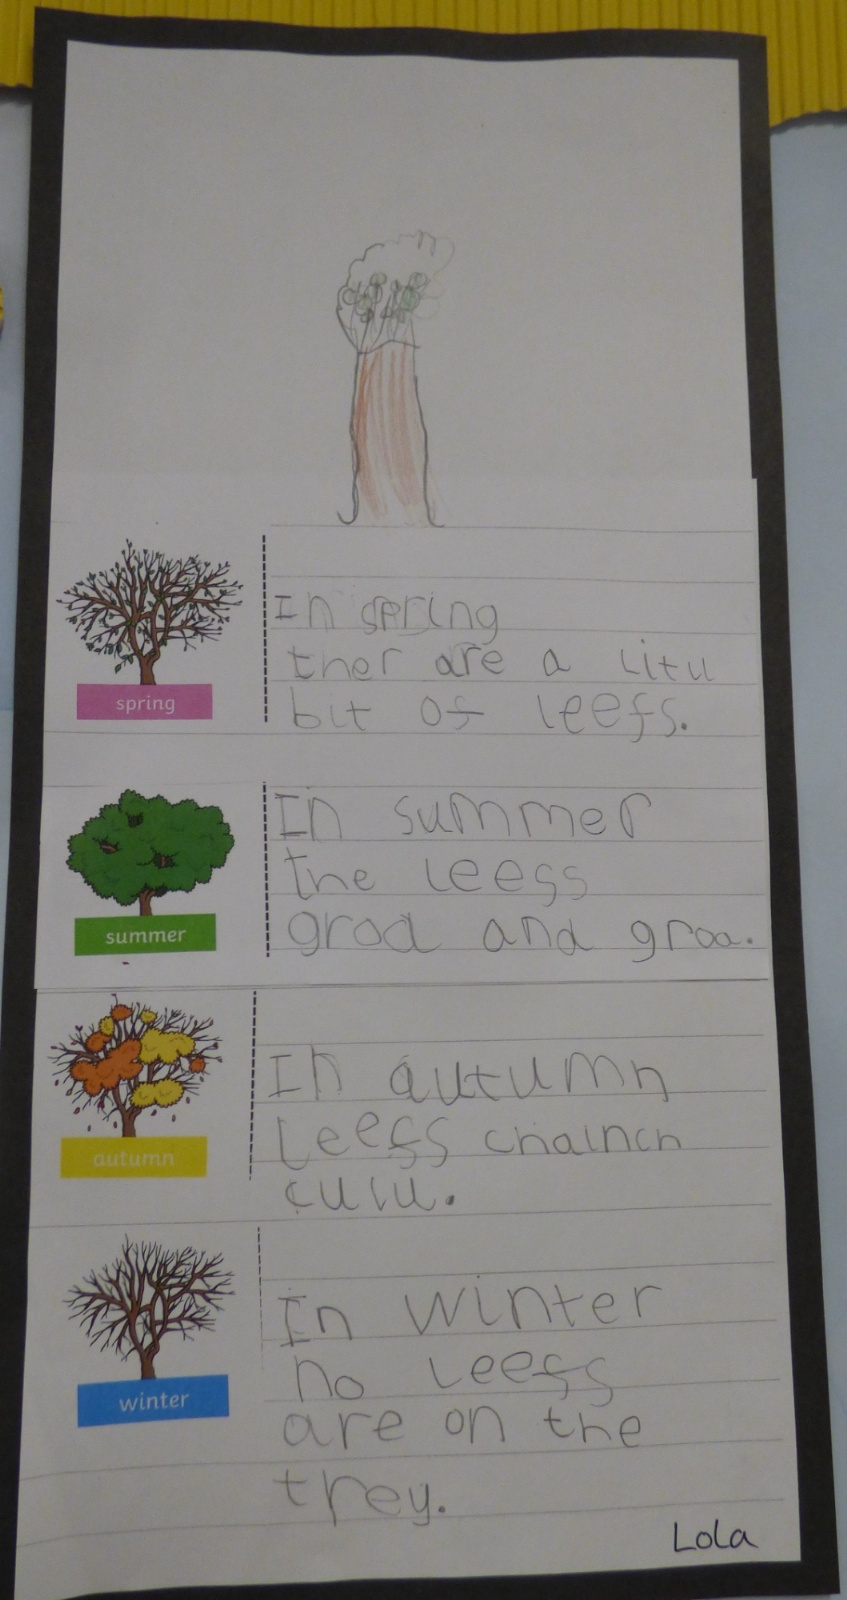 In spring
ther are a litu
bit of leefs.
spring
In summer
the leefs
groa and groa.
summer
In autumn
Leefs chainch
culu.
autumn
In winter
no leefs
are on the
trey.
winter
Lola